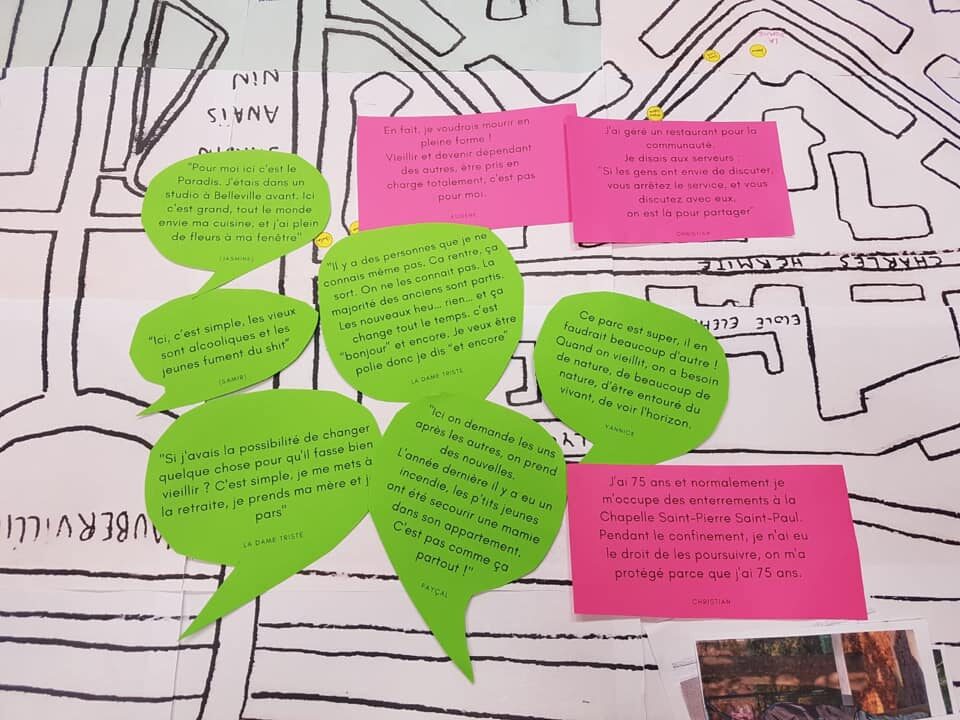 ANAÏS
NIN
"Pour moi ici c'est le
Paradis. J'étais dans un
studio à Belleville avant. Ici
c'est grand, tout le monde
envie ma cuisine, et j'ai plein
de fleurs à ma fenêtre"
(JASMINE)
En fait, je voudrais mourir en
pleine forme !
Vieillir et devenir dépendant
des autres, être pris en
charge totalement, c'est pas
pour moi.
J'ai géré un restaurant pour la
communauté.
Je disais aux serveurs :
"Si les gens ont envie de discuter,
vous arrêtez le service, et vous
discutez avec eux,
on est là pour partager"
CHRISTIAN
"Il y a des personnes que je ne
connais même pas. Ca rentre, ça
sort. On ne les connait pas. La
majorité des anciens sont partis.
Les nouveaux heu... rien... et ça
change tout le temps. c'est
"bonjour" et encore. Je veux être
polie donc je dis "et encore"
LA DAME TRISTE
CHARLES HERMITE
"Ici, c'est simple, les vieux
sont alcooliques et les
jeunes fument du shit"
(SAMIR)
Ce parc est super, il en
faudrait beaucoup d'autre !
Quand on vieillit, on a besoin
de nature, de beaucoup de
nature, d'être entouré du
vivant, de voir l'horizon.
YANNICK
"Si j'avais la possibilité de changer
quelque chose pour qu'il fasse bien
vieillir ? C'est simple, je me mets à
la retraite, je prends ma mère et j
pars"
LA DAME TRISTE
"Ici on demande les uns
après les autres, on prend
des nouvelles.
L'année dernière il y a eu un
incendie, les p'tits jeunes
ont été secourir une mamie
dans son appartement.
C'est pas comme ça
partout !"
FAYÇAL
J'ai 75 ans et normalement je
m'occupe des enterrements à la
Chapelle Saint-Pierre Saint-Paul.
Pendant le confinement, je n'ai eu
le droit de les poursuivre, on m'a
protégé parce que j'ai 75 ans.
CHRISTIAN